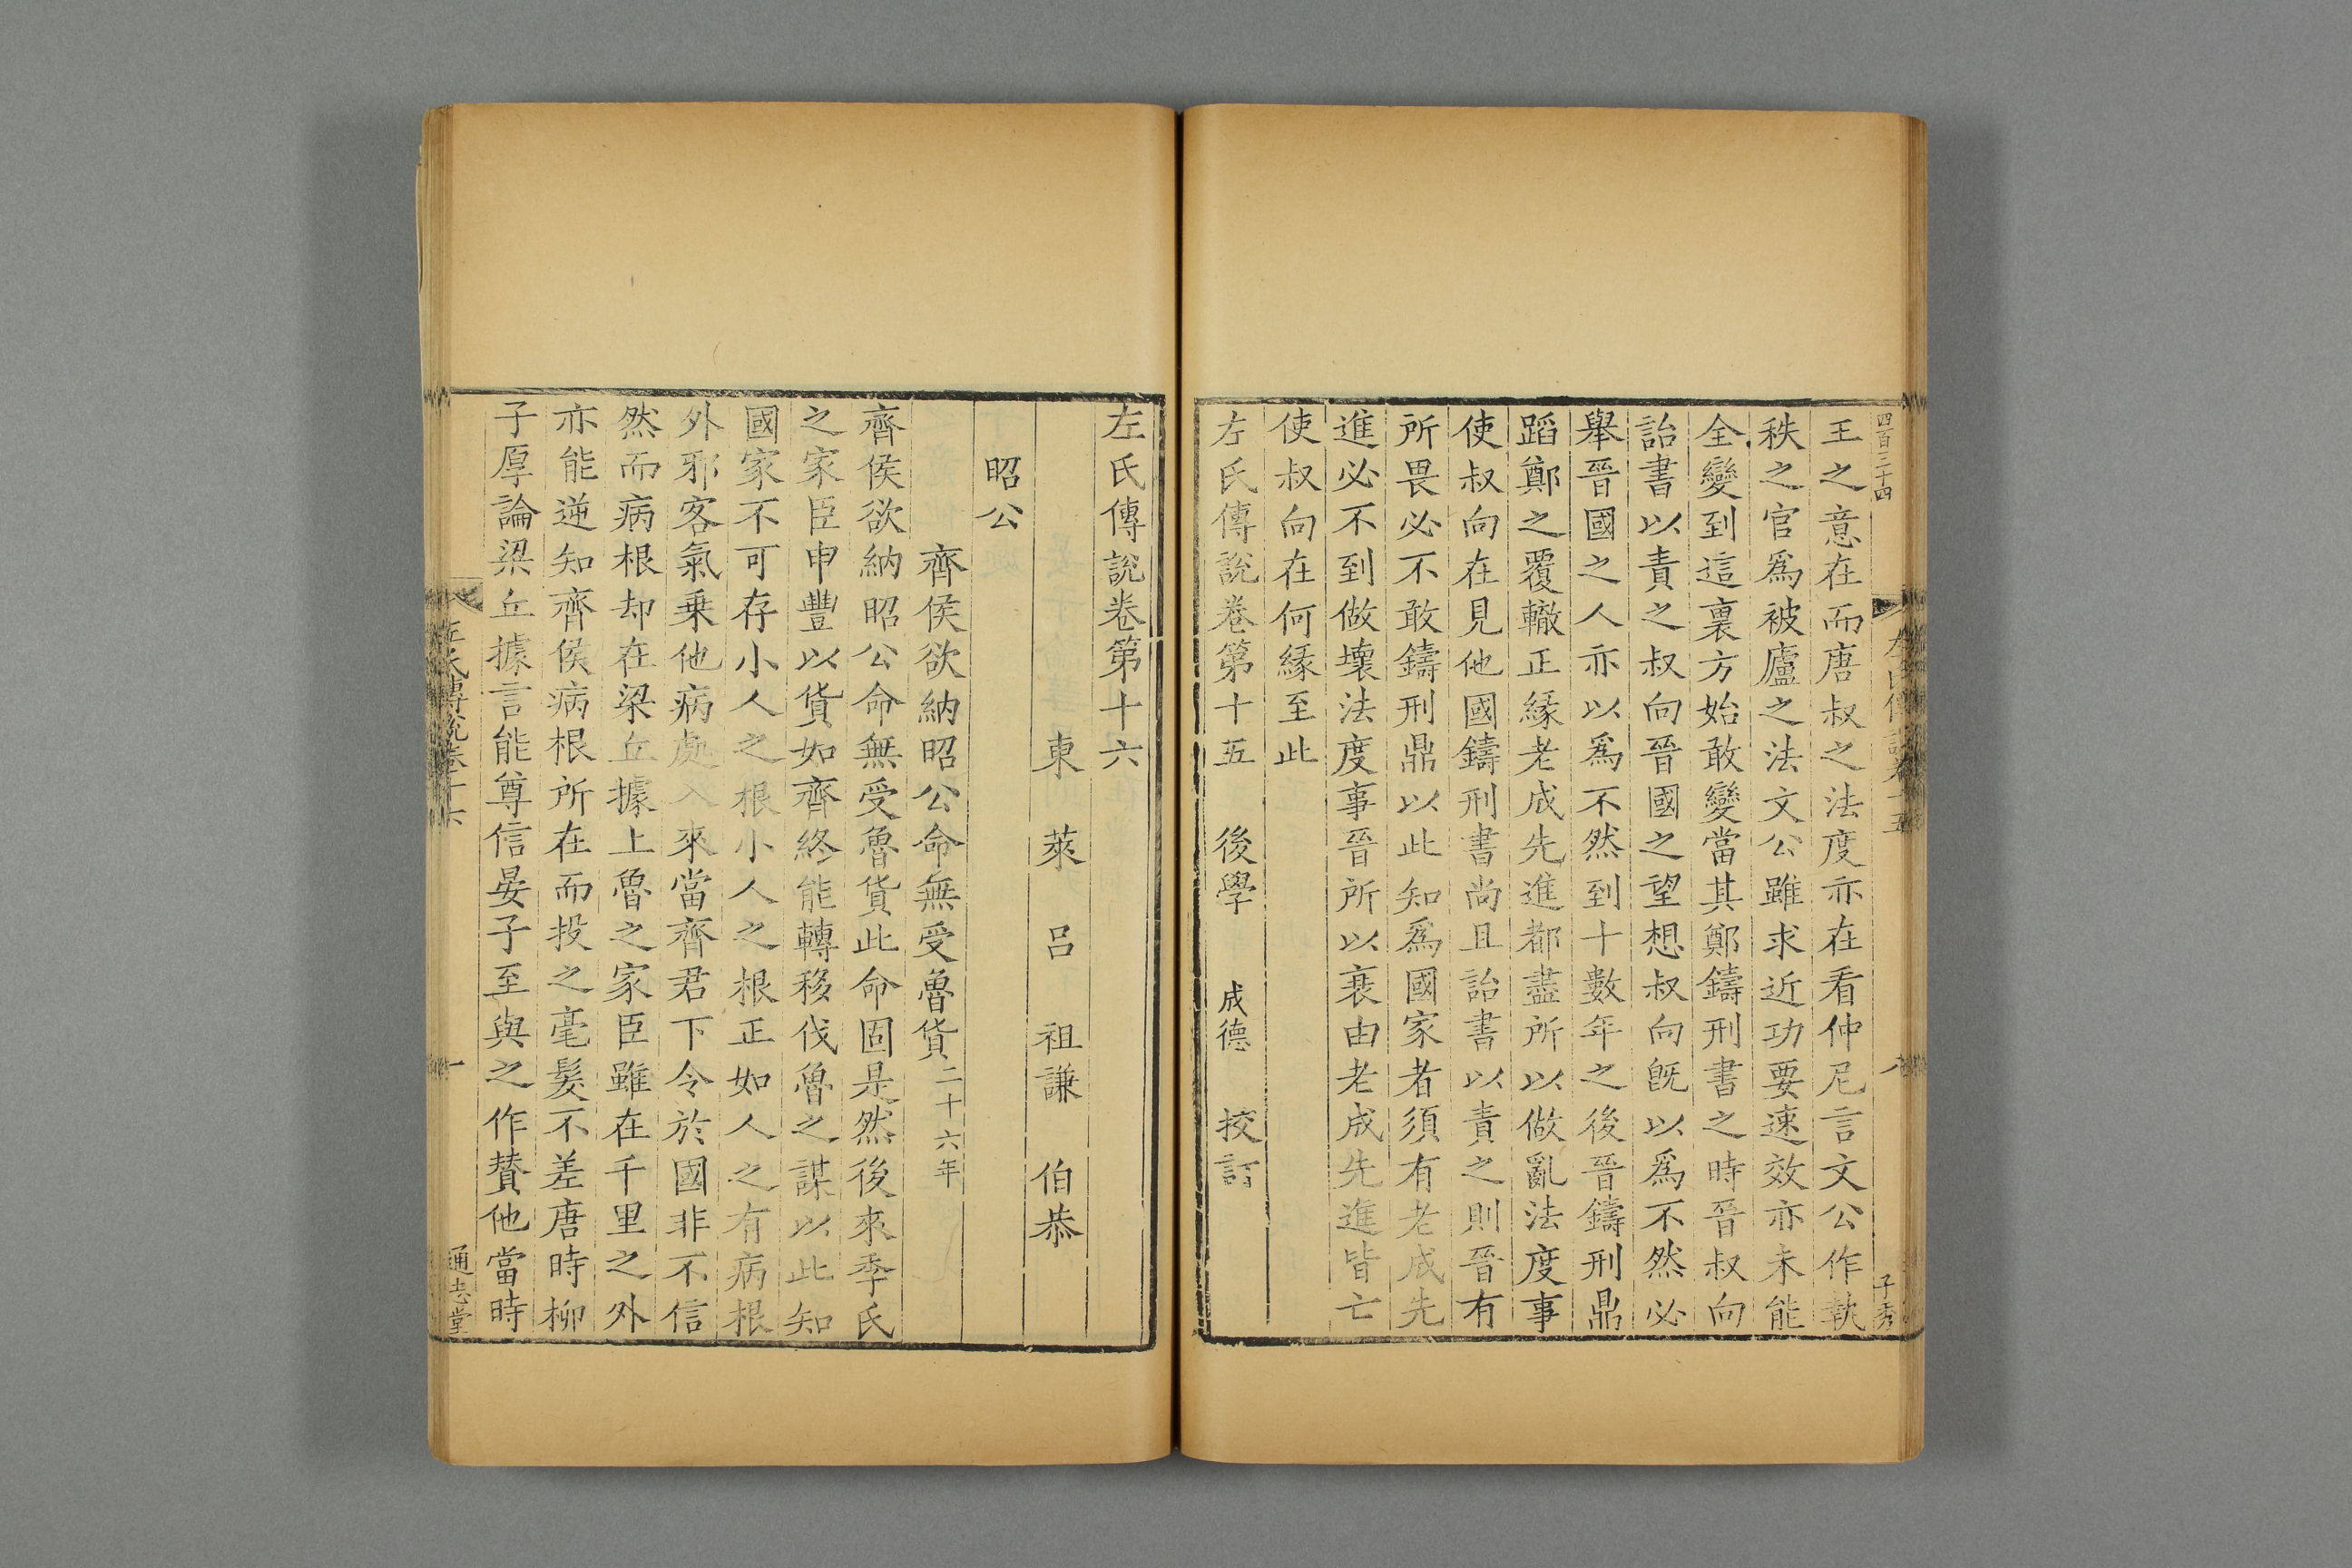 四百三十四
子秀
王之意在而唐叔之法度亦在看仲尼言文公作執
秩之官爲被廬之法文公雖求近功要速效亦未能
全變到這裏方始敢變當其鄭鑄刑書之時晉叔向
詒書以責之叔向晉國之望想叔向旣以爲不然必
舉晉國之人亦以爲不然到十數年之後晉鑄刑鼎
蹈鄭之覆轍正緣老成先進都盡所以做亂法度事
使叔向在見他國鑄刑書尚且詒書以責之則晉有
所畏必不敢鑄刑鼎以此知爲國家者須有老成先
進必不到做壞法度事晉所以衰由老成先進皆亡
使叔向在何緣至此
左氏傳說卷第十五 後學 成德 挍訂
左氏傳說卷第十六
東萊呂祖謙伯恭
昭公
齊侯欲納昭公命無受魯貨二十六年
齊侯欲納昭公命無受魯貨此命固是然後來季氏
之家臣申豐以貨如齊終能轉移伐魯之謀以此知
國家不可存小人之根小人之根正如人之有病根
外邪客氣乗他病處入來當齊君下令於國非不信
然而病根却在梁丘據上魯之家臣雖在千里之外
亦能逆知齊侯病根所在而投之毫髪不差唐時柳
子厚論梁丘據言能尊信晏子至與之作賛他當時
左氏傳說卷十六
一
通志堂